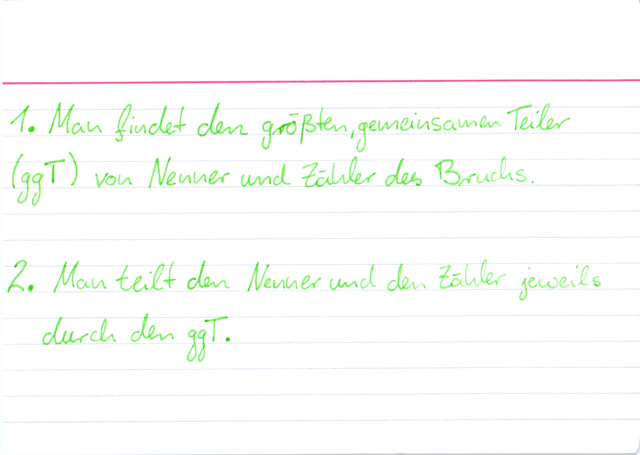 1. Man findet den größten, gemeinsamen Teiler
(ggT) von Nenner und Zähler des Bruchs.
2. Man teilt den Nenner und den Zähler jeweils
durch den ggT.